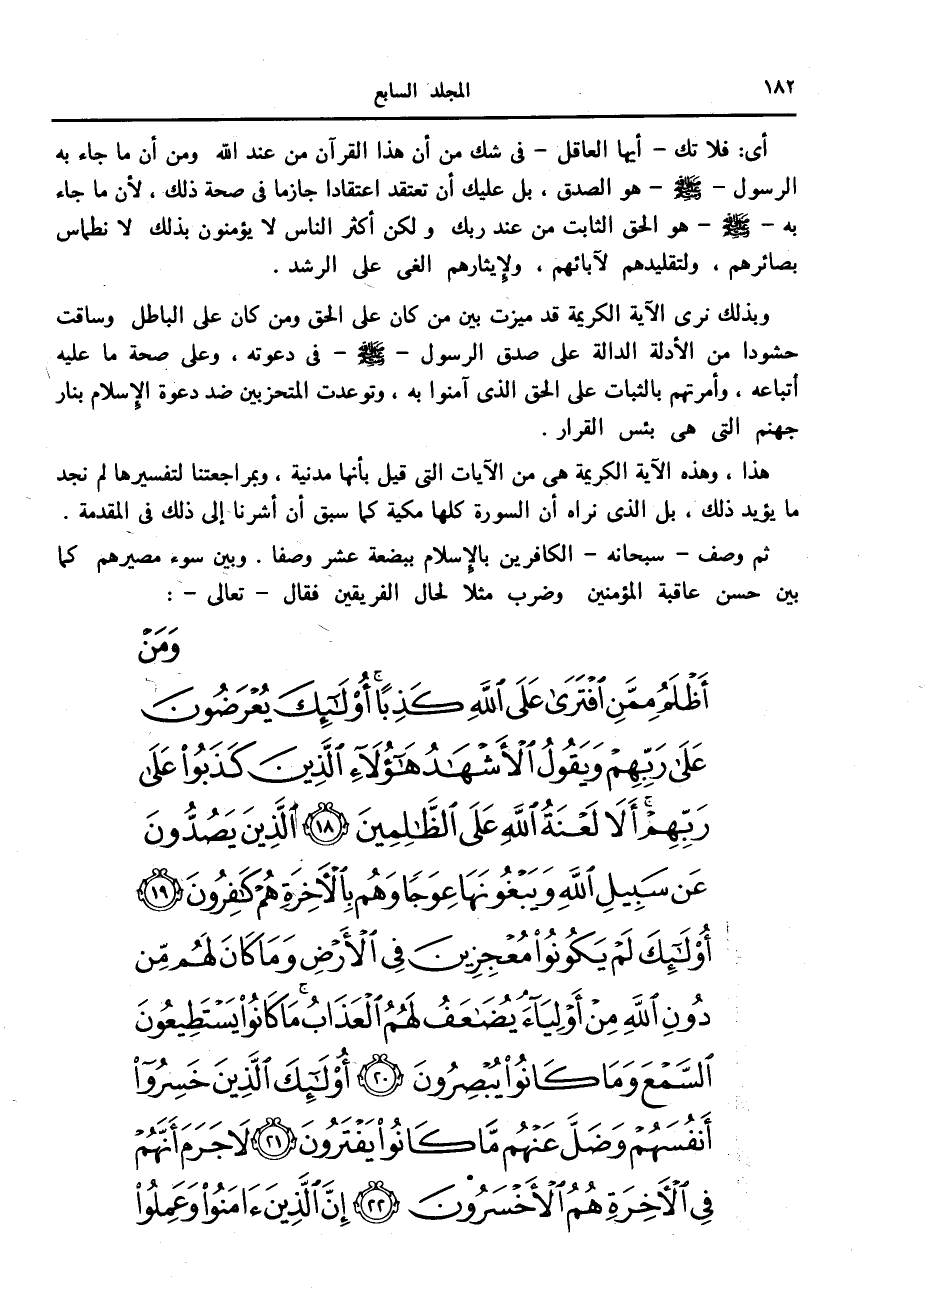 ١٨٢
المجلد السابع
أى: فلا تك - أيها العاقل - فى شك من أن هذا القرآن من عند الله ومن أن ما جاء به
الرسول - ﷺ - هو الصدق ، بل عليك أن تعتقد اعتقادا جازما فى صحة ذلك ، لأن ما جاء
به - ﷺ - هو الحق الثابت من عند ربك و لكن أكثر الناس لا يؤمنون بذلك لا نطماس
بصائرهم ، ولتقليدهم لآبائهم ، ولإيثارهم الغى على الرشد .
وبذلك نرى الآية الكريمة قد ميزت بين من كان على الحق ومن كان على الباطل وساقت
حشودا من الأدلة الدالة على صدق الرسول - ﷺ - فى دعوته ، وعلى صحة ما عليه
أتباعه ، وأمرتهم بالثبات على الحق الذى آمنوا به ، وتوعدت المتحزبين ضد دعوة الإسلام بنار
جهنم التى هى بئس القرار .
هذا ، وهذه الآية الكريمة هى من الآيات التى قيل بأنها مدنية ، وبمراجعتنا لتفسيرها لم نجد
ما يؤيد ذلك ، بل الذى نراه أن السورة كلها مكية كما سبق أن أشرنا إلى ذلك فى المقدمة .
ثم وصف - سبحانه - الكافرين بالإسلام ببضعة عشر وصفا . وبين سوء مصيرهم كما
بين حسن عاقبة المؤمنين وضرب مثلا لحال الفريقين فقال - تعالى - :
وَمَنْ
أَظْلَمُ مِمَّنِ ٱفْتَرَىٰ عَلَى ٱللَّهِ كَذِبًا ۚ أُو۟لَـٰٓئِكَ يُعْرَضُونَ
عَلَىٰ رَبِّهِمْ وَيَقُولُ ٱلْأَشْهَـٰدُ هَـٰٓؤُلَآءِ ٱلَّذِينَ كَذَبُوا۟ عَلَىٰ
رَبِّهِمْ ۚ أَلَا لَعْنَةُ ٱللَّهِ عَلَى ٱلظَّـٰلِمِينَ ١٨ ٱلَّذِينَ يَصُدُّونَ
عَن سَبِيلِ ٱللَّهِ وَيَبْغُونَهَا عِوَجًا وَهُم بِٱلْـَٔاخِرَةِ هُمْ كَـٰفِرُونَ ١٩
أُو۟لَـٰٓئِكَ لَمْ يَكُونُوا۟ مُعْجِزِينَ فِى ٱلْأَرْضِ وَمَا كَانَ لَهُم مِّن
دُونِ ٱللَّهِ مِنْ أَوْلِيَآءَ ۘ يُضَـٰعَفُ لَهُمُ ٱلْعَذَابُ ۚ مَا كَانُوا۟ يَسْتَطِيعُونَ
ٱلسَّمْعَ وَمَا كَانُوا۟ يُبْصِرُونَ ٢٠ أُو۟لَـٰٓئِكَ ٱلَّذِينَ خَسِرُوٓا۟
أَنفُسَهُمْ وَضَلَّ عَنْهُم مَّا كَانُوا۟ يَفْتَرُونَ ٢١ لَا جَرَمَ أَنَّهُمْ
فِى ٱلْـَٔاخِرَةِ هُمُ ٱلْأَخْسَرُونَ ٢٢ إِنَّ ٱلَّذِينَ ءَامَنُوا۟ وَعَمِلُوا۟